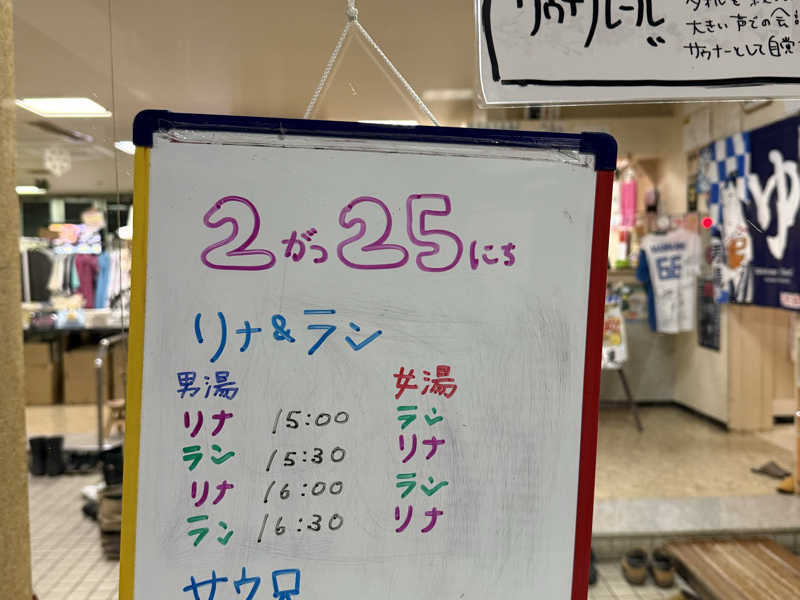 サウナルール〃
大きい声での会
サウナーとして自覚
2がつ25にち
リナ&ラン
男湯 女湯
リナ 15:00 ラン
ラン 15:30 リナ
リナ 16:00 ラン
ラン 16:30 リナ
サウ兄
ゆ
66